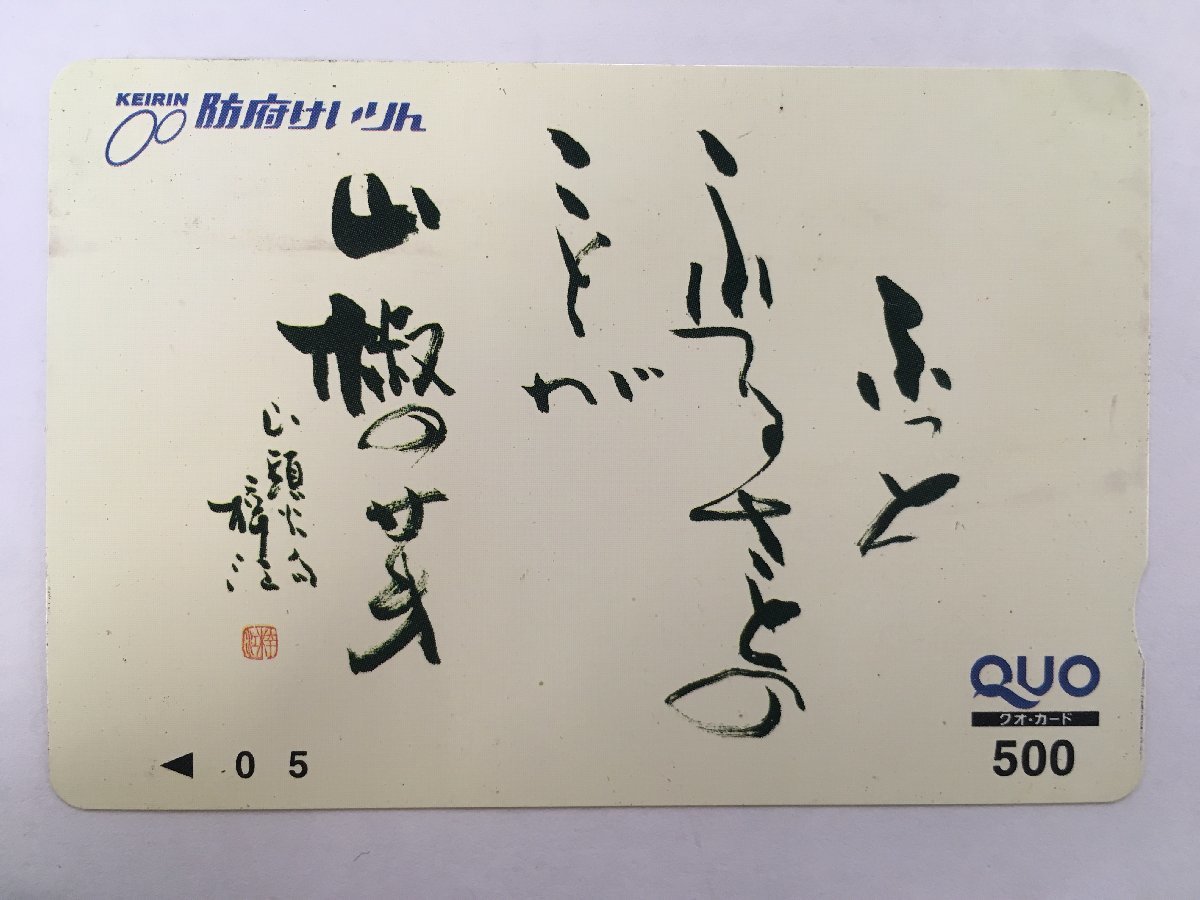 KEIRIN
防府けいりん
ふっと
ふるさとの
ことが
山椒の芽
山頭火句
QUO
クオ・カード
500
◀ 0 5